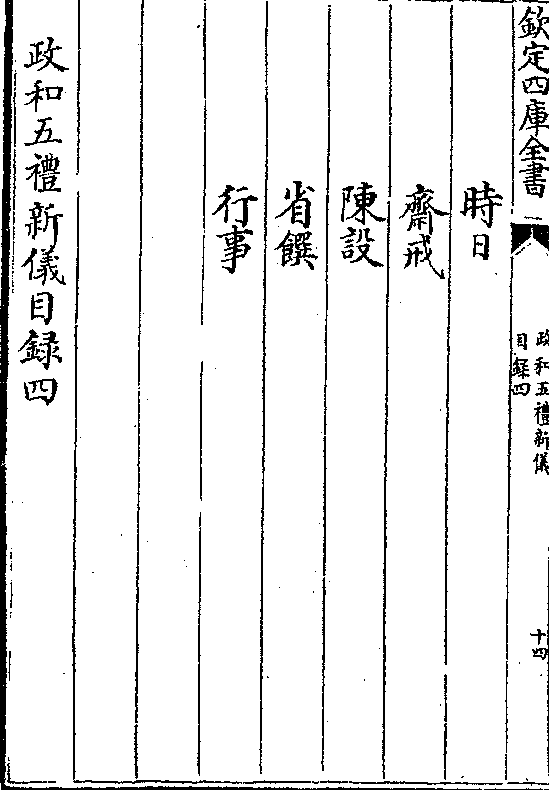 欽定四庫全書
政和五禮新儀
目録四
十四
時日
齋戒
陳設
省饌
行事
政和五禮新儀目録四